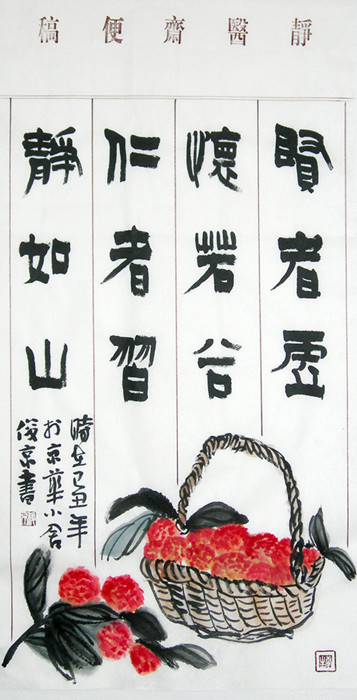 靜醫齋便稿
賢者虛
懷若谷
仁者習
靜如山
時在己丑年
於京華小舍
俊京書